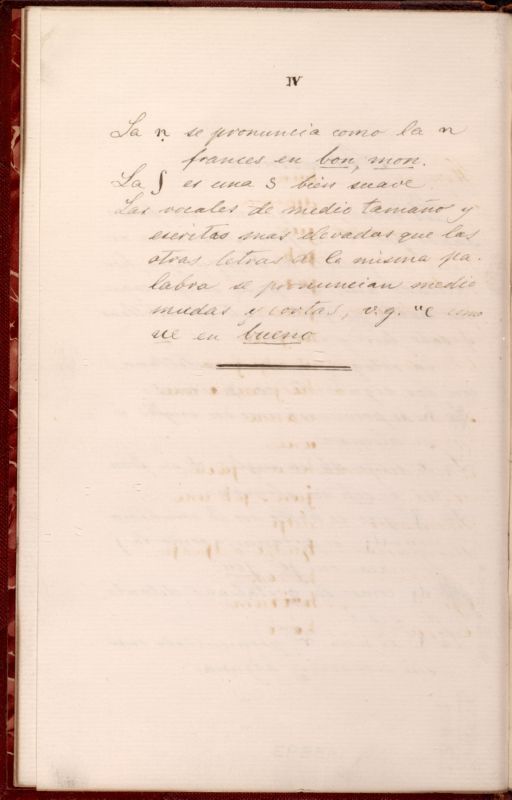 IV
La ṇ se pronuncia como la n
frances en bon, mon.
La ʃ es una s bien suave
Las vocales de medio tamaño y
escritas mas elevadas que las
otras letras de la misma pa-
labra se pronuncian medio
mudas y cortas, v.g. ᵘe como
ue en bueno